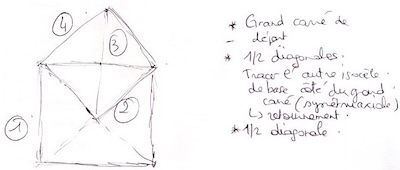 ④
③
①
②
* Grand carré de
- départ
* 1/2 diagonales.
Tracer autre isocèle
de base côté du grand
carré (symétrie axiale)
↳ retournement.
* 1/2 diagonale.